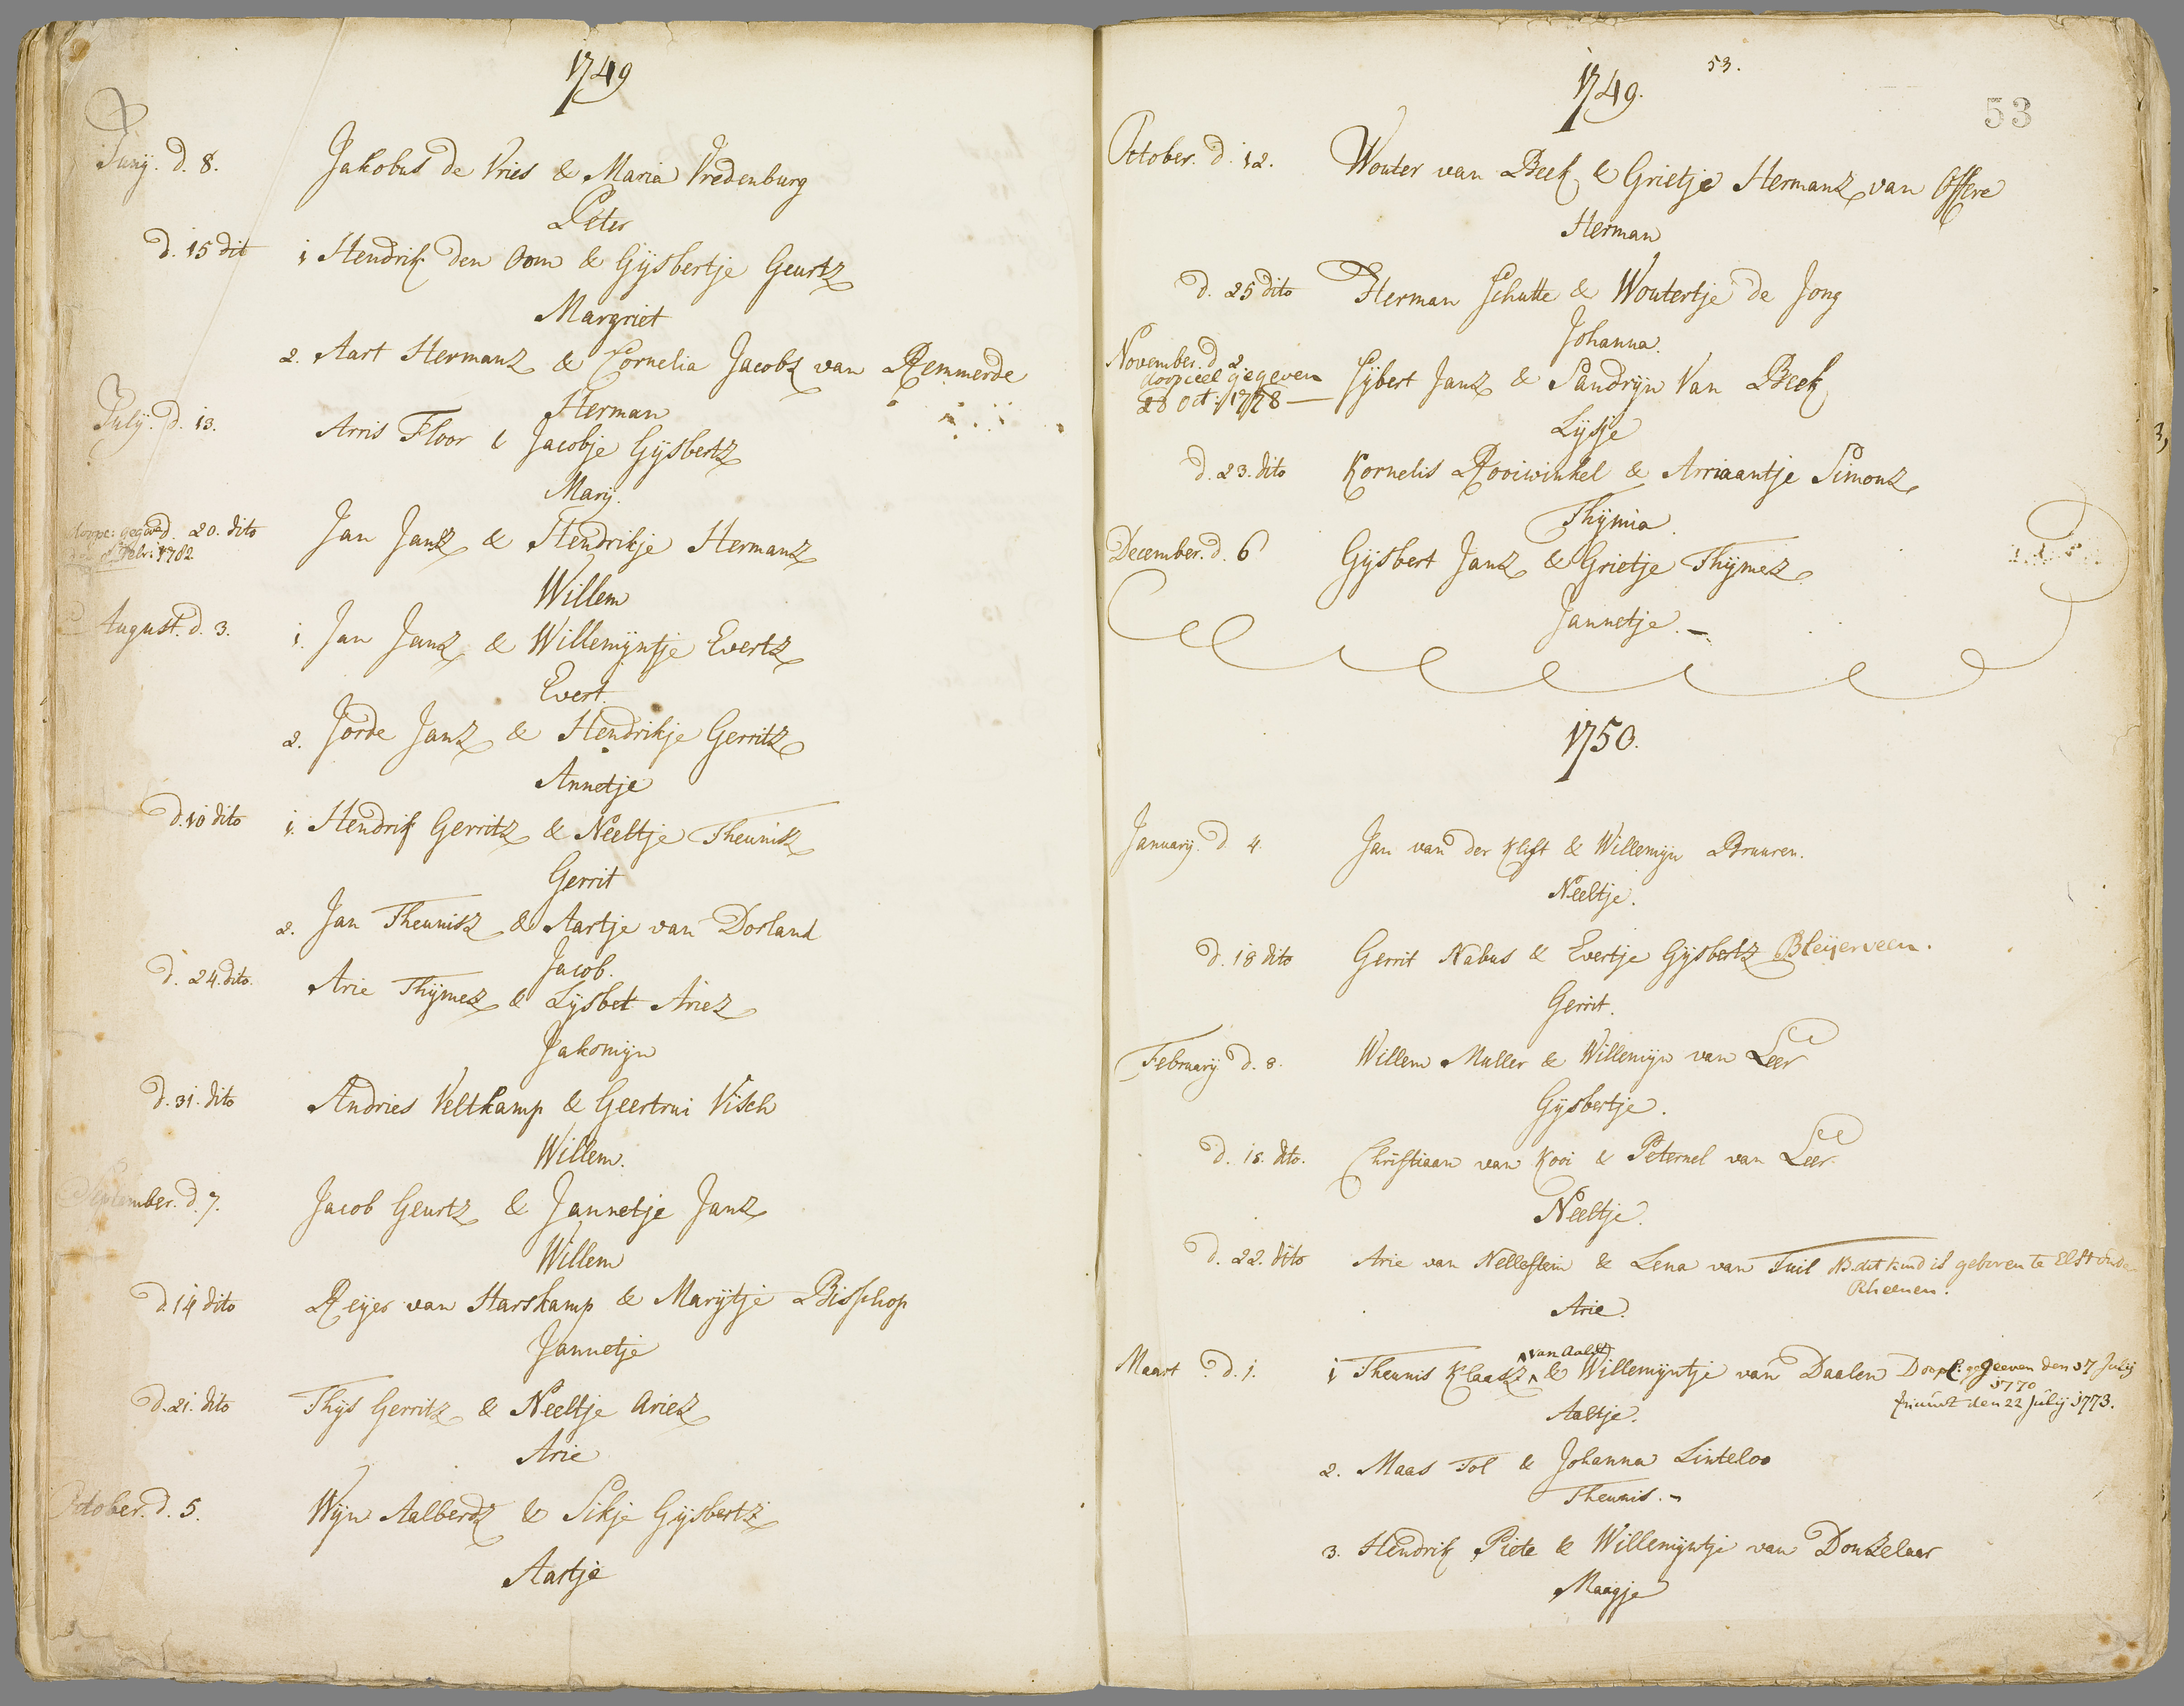 1749
Junij. d. 8. Jakobus de Vries & Maria Vredenburg
Peter
d. 15 dit 1 Hendrik den Oom & Gijsbertje Geurtz
Margriet
2. Aart Hermanz & Cornelia Jacobz van Remmerde
Herman
Julij. d. 13. Arris Floor & Jacobje Gijsbertz
Marij.
d. 20. dito Jan Janz & Hendrikje Hermanz
Febr: 1782
Willem
August. d. 3. 1. Jan Janz & Willemijntje Evertz
Evert.
2. Jorde Janz & Hendrikje Gerritz
Annetje
d. 10 dito 1. Hendrik Gerritz & Neeltje Theunisz
Gerrit
2. Jan Theunisz & Aartje van Dorland
Jacob.
d. 24. dito. Arie Thijmez & Lijsbet Ariez
Jakomijn
d. 31. dito Andries Veltkamp & Geertrui Visch
Willem.
September. d. 7. Jacob Geurtz & Jannetje Janz
Willem
d. 14 dito Reijer van Harskamp & Marijtje Bisschop
Jannetje
d. 21. dito Thijs Gerritz & Neeltje Ariez
Arie
October. d. 5. Wijn Aalberdz & Sikje Gijsbertz
Aartje
53.
1749.
53
October. d. 12. Wouter van Beek & Grietje Hermanz van Offere
Herman
d. 25 dito Herman Schutte & Woutertje de Jong
Johanna.
November. d. 2. Sijbert Janz & Sandrijn Van Beek
doopceel gegeven
28 Oct: 1778 —
Lijsje
d. 23. dito Kornelis Rooiwinkel & Arriaantje Simonz
Thijmia.
December. d. 6 Gijsbert Janz & Grietje Thijmez
Jannetje. –
1750.
Januarij. d. 4. Jan van der Klift & Willemijn Bruuren.
Neeltje.
d. 18 dito Gerrit Nabus & Evertje Gijsbertz Bleijerveen.
Gerrit.
Februarij d. 8. Willem Muller & Willemijn van Leer
Gijsbertje.
d. 15. dito. Christiaan van Kooi & Peternel van Leer.
Neeltje.
d. 22. dito Arie van Nellestein & Lena van Tuil NB dit kind is geboren te Elst onder
Rheenen.
Arie.
van Aalst
Maart d. 1. 1 Theunis Klaasz & Willemijntje van Daalen Doopc: gegeeven den 17 Julij
1770
Aaltje.
den 22 Julij 1773.
2. Maas Tol & Johanna Linteloo
Theunis. –
3. Hendrik Piete & Willemijntje van Donkelaar
Maagje